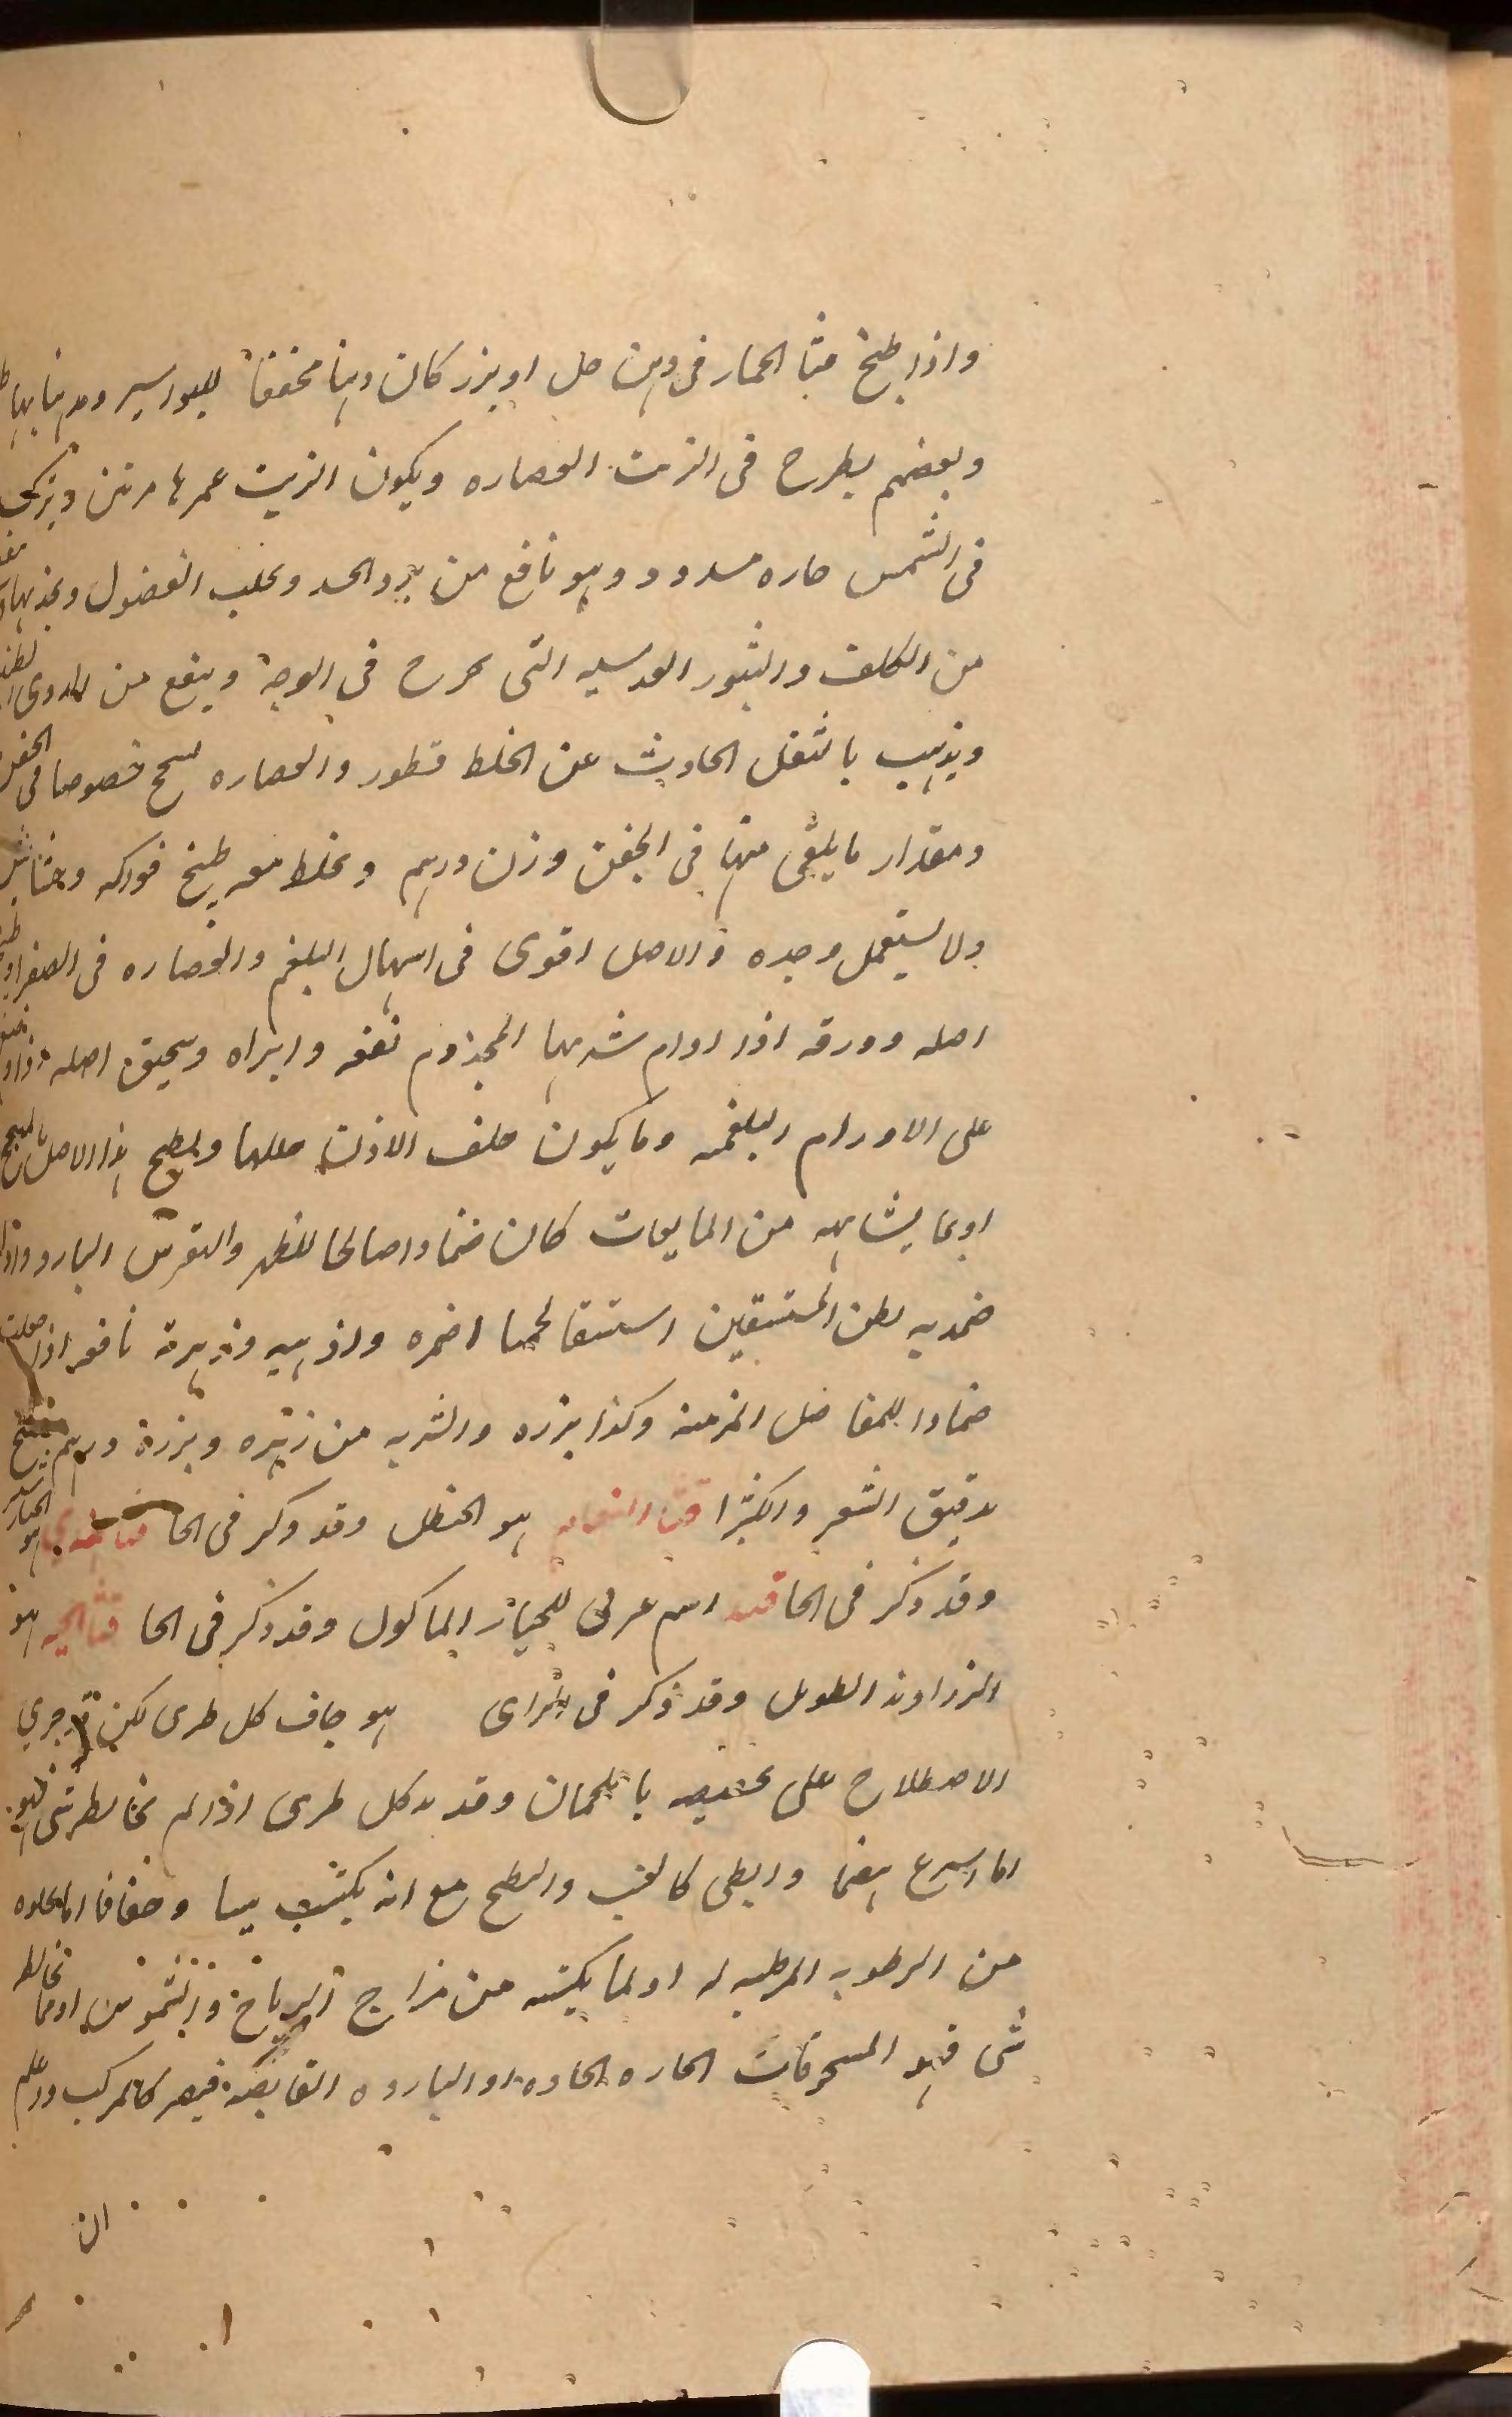 واذا طبخ قثا الحمار فى دهن حل او بزر كان دهنا مجففا للبواسير ومدهنا بها
وبعضهم يطرح فى الزيت العصاره ويكون الزيت غمرها مرتين ويترك
فى الشمس حاره مسدود وهو نافع من برد الجسد ويجلب الفضول ويجذبها
من الكلف والبثور العدسيه التى تخرج فى الوجه وينفع من الدوى
ويذهب بالثقل الحادث عن الخلط قطور والعصاره خصوصا فى الحقن
ومقدار ما يلقى منها فى الحقن وزن درهم ويخلط معه طبخ فواكه
ولا يستعمل وحده والاصل اقوى فى اسهال البلغم والعصاره فى الصفرا
اصله وورقه اذا ادام شربها المجذوم نفعه وابراه وسحيق اصله اذا
على الاورام البلغميه وما يكون خلف الاذن حللها ويطبخ هذا الاصل
او بما يشابهه من المايعات كان ضمادا صالحا للظهر والنقرس البارد واذا
ضمد به بطن المستسقين استسقا لحميا اضمره واذهبه وزهرته نافعه اذا
ضمادا للمفاصل المزمنه وكذا بزره والشربه من زهره وبزره درهم
بدقيق الشعير والكثيرا قثا النعام هو الحنظل وقد ذكر فى الحا قثا هندى هو
وقد ذكر فى الحا قثد اسم عربى للخيار الماكول وقد ذكر فى الخا قثا الحيه هو
الزراوند الطويل وقد ذكر فى الزاى هو جاف كل طرى لكن قد جرى
الاصطلاح على تخصيصه باللحمان وقديد كل طرى اذا لم يخالطه شى فهو
اما اسرع هضما وابطى كالعنب والبطيخ مع انه يكتسب يبسا وجفافا اما لخلوه
من الرطوبه المرطبه له او لما يكتسبه من مزاج الرياح والشموس او مما يخالطه
شى فهو المسحوقات الحاره الحاده او البارده القابضه فيصير كالمركب واعلم
ان